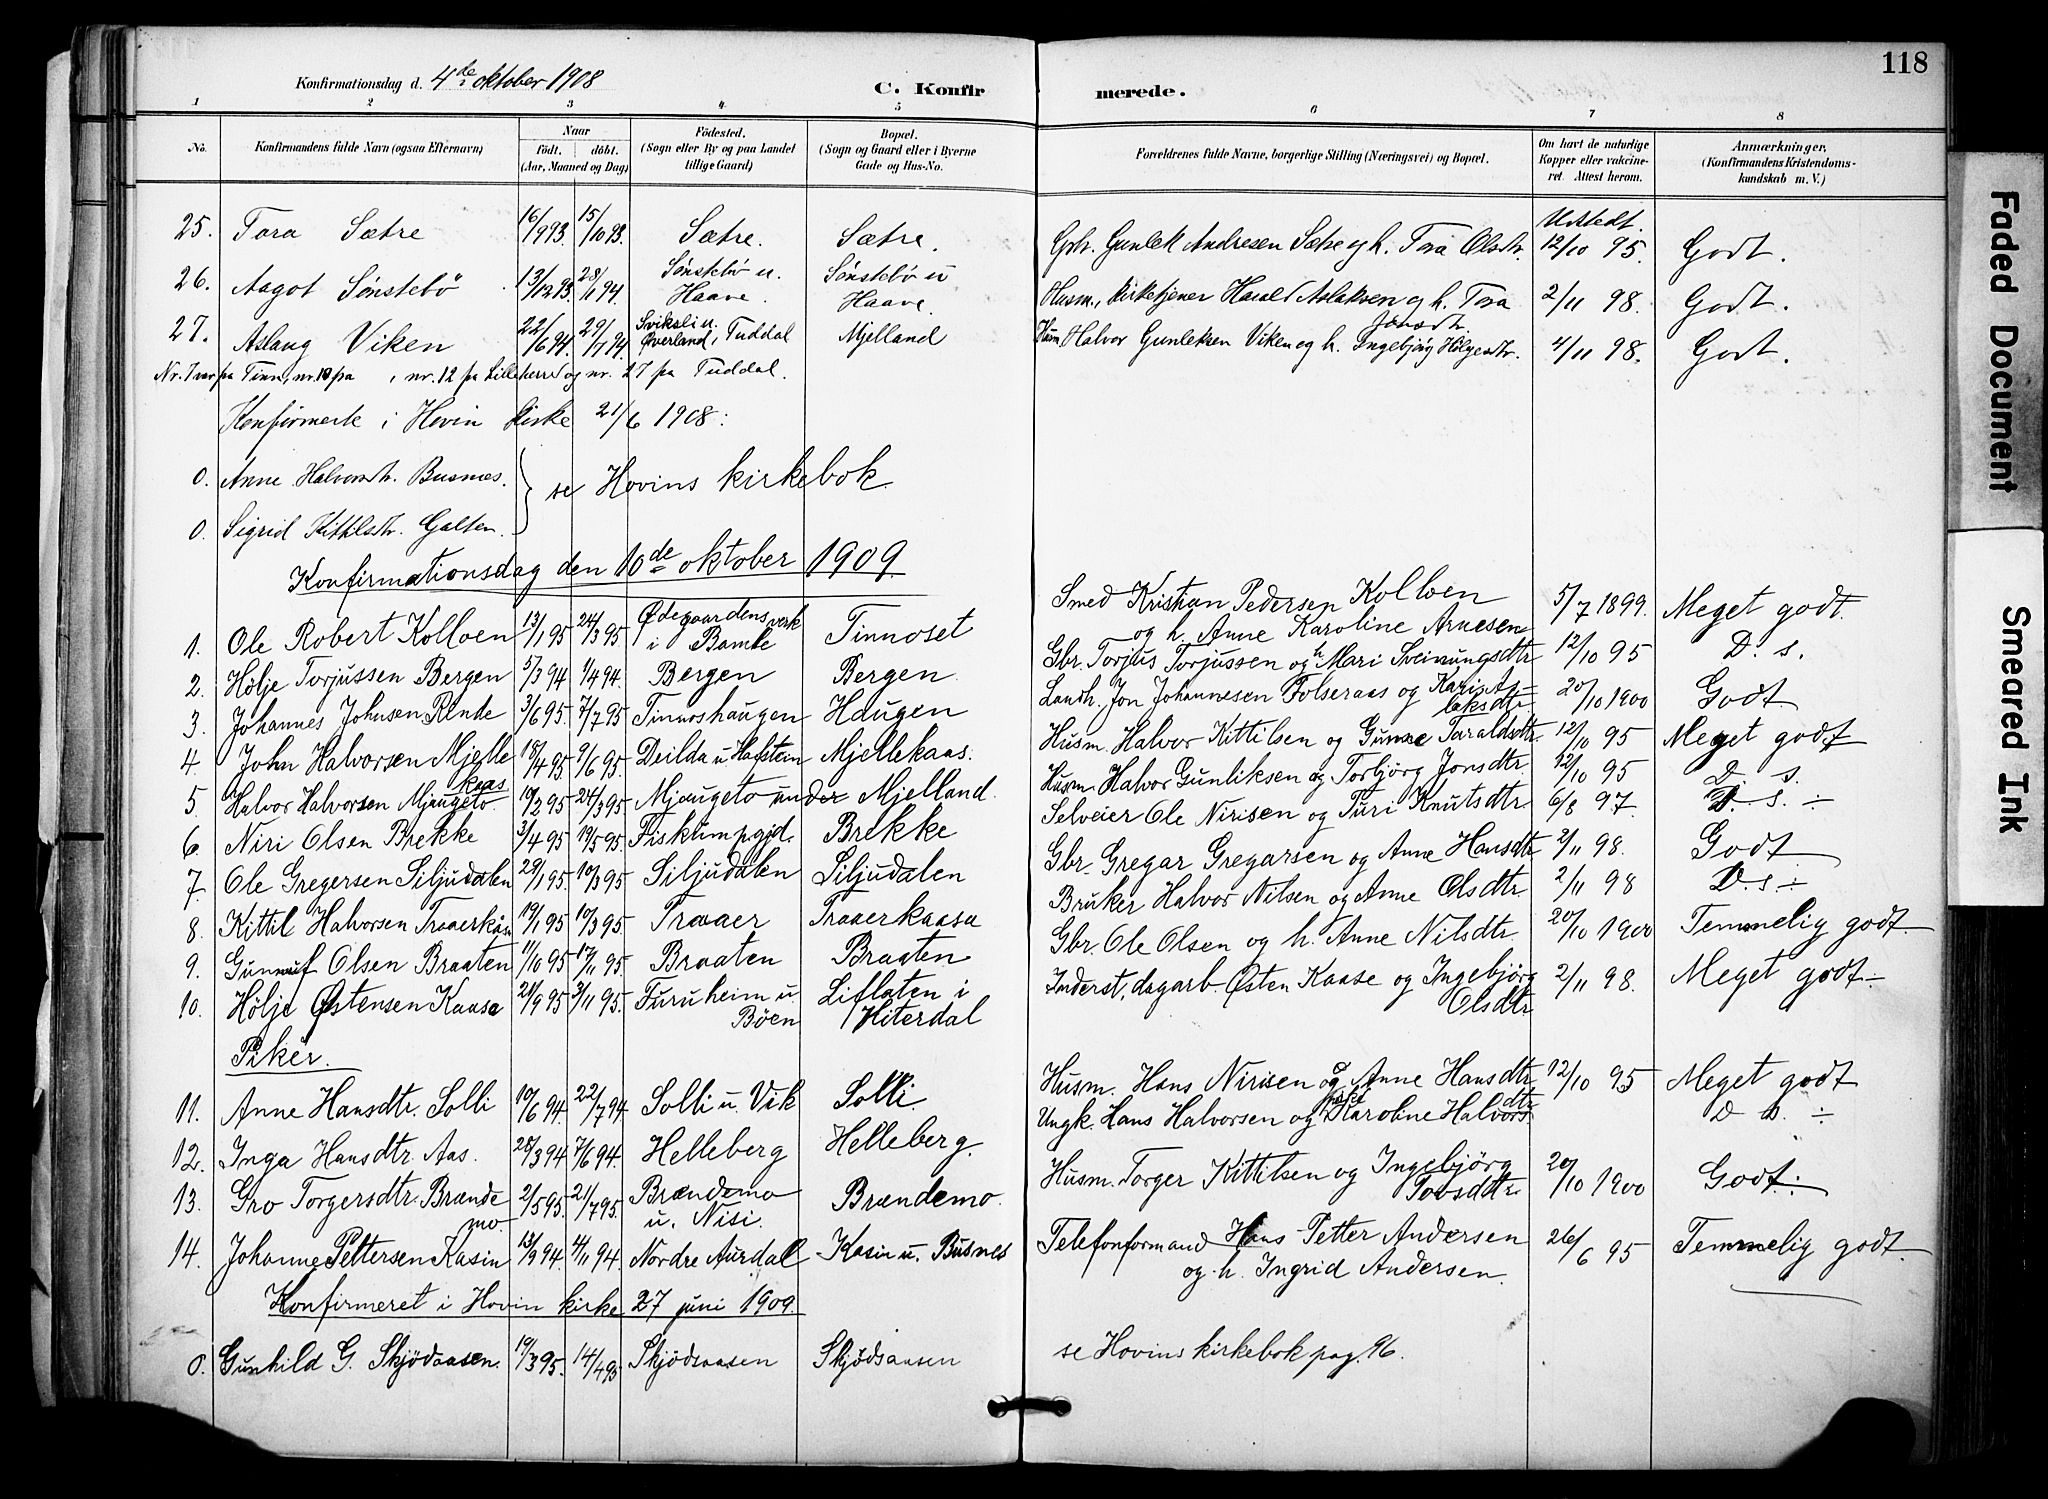 118
Konfirmationsdag d. 4de oktober 1908
C. Konfirmerede.
1 2 3 4 5 6 7 8
No. Konfirmandens fulde Navn (ogsaa Efternavn) Naar født. døbt. (Aar, Maaned og Dag) Fødested. (Sogn eller By og paa Landet tillige Gaard) Bopæl. (Sogn og Gaard eller i Byerne Gade og Hus-No. Forældrenes fulde Navne, borgerlige Stilling (Næringsvei) og Bopæl. Om havt de naturlige Kopper eller vaccineret. Attest herom. Anmærkninger, (Konfirmandens Kristendomskundskab m. V.)
Utstedt.
25. Tora Sætre 16/9 93. 15/10 93. Sætre. Sætre. Gbr. Gunlek Andresen Sætre og h. Tora Olsdtr. 12/10 95. Godt.
26. Aagot Sønstebö 13/12 93. 28/1 94. Sønstebö u. Haave. Sønstebö u Haave. Husm., kirketjener Harald Aslaksen og h. Tora Jonsdtr. 2/11 98. Godt.
27. Aslaug Viken 22/6 94. 29/7 94 Sviksli u. Øverland, Tuddal Mjelland Husm. Halvor Gunleksen Viken og h. Ingebjörg Hölgesdtr. 2/11 98. Godt.
Nr. 7 var fra Tinn, nr. 10 fra , nr. 12 fra Lilleherred og nr. 27 fra Tuddal.
Konfirmerte i Hovin kirke 21/6 1908:
0. Anne Halvorsdtr. Busnes.
se Hovins kirkebok
0. Sigrid Kittilsdtr. Galten.
Konfirmationsdag den 10de oktober 1909.
1. Ole Robert Kolloen 13/1 95 24/3 95 Ødegaardens verk i Bamle Tinnoset Smed Kristian Pedersen Kolloen og h. Anne Karoline Arnesen 5/7 1899. Meget godt.
2. Hölje Torjussen Bergen 5/3 94 1/4 94. Bergen Bergen Gbr. Torjus Torjussen og h Mari Sveinungsdtr 12/10 95 D. s.
3. Johannes Johnsen Rinde 3/6 95. 7/7 95 Tinnoshaugen Haugen Landh. Jon Johannesen Folseraas og Kari Aslaksdtr. 20/10 1900 Godt
4. John Halvorsen Mjellekaas 18/4 95 9/6 95. Deilda u Hafstein Mjellekaas. Husm. Halvor Kittilsen og Gunne Taraldsdtr. 12/10 95 Meget godt
5. Halvor Halvorsen Mjaugeto 10/2 95 24/3 95 Mjaugeto under Mjelland. Husm. Halvor Gunliksen og Torbjörg Jonsdtr. 12/10 95 D. s.
6. Niri Olsen Brekke 3/4 95 19/5 95. Fiskum pgjd. Brekke Selveier Ole Nirisen og Turi Knutsdtr 6/8 97. D. s. ÷
7. Ole Gregersen Siljudalen 29/1 95. 10/3 95 Siljudalen Siljudalen Gbr. Gregar Gregarsen og Anne Hansdtr. 2/11 98. Godt
8. Kittil Halvorsen Traaerkaas 19/1 95 10/3 95. Traaer Traaerkaasa Bruker Halvor Nilsen og Anne Olsdtr. 2/11 98 D. s. ÷
9. Gunnuf Olsen Braaten 11/10 95 17/11 95. Braaten Braaten Gbr. Ole Olsen og h. Anne Nilsdtr. 20/10 1900 Temmelig godt.
10. Hölje Østensen Kaasa 21/9 95 3/11 95. Furuheim u. Böen Liflaten i Hiterdal Inderst, dagarb. Østen Kaase og Ingebjörg Olsdtr. 2/11 98. Meget godt ÷
Piker.
11. Anne Hansdtr. Solli 10/6 94. 22/7 94. Solli u. Vik Solli. Husm. Hans Nirisen og Anne Hansdtr. 12/10 95 Meget godt
12. Inga Hansdtr. Aas. 28/3 94 7/6 94. Helleberg Helleberg. Ungk. Hans Halvorsen og Karoline Halvorsdtr. D s. ÷
13. Gro Torgersdtr. Brændemo. 2/5 95. 21/7 95. Brændemo u. Nisi. Brændemo. Husm. Torger Kittilsen og Ingebjörg Tovsdtr. 20/10 1900 Godt.
14. Johanne Pettersen Kasin 13/9 94. 4/11 94. Nordre Aurdal Kasin u. Busnes Telefonformand Hans Petter Andersen og h. Ingrid Andersen. 26/6 95 Temmelig godt
Konfirmeret i Hovin kirke 27 juni 1909.
0. Gunhild G. Skjödsaasen. 19/3 95. 14/4 95 Skjödsaasen Skjödsaasen se Hovins kirkebok pag. 96.
Faded Document
Smeared Ink